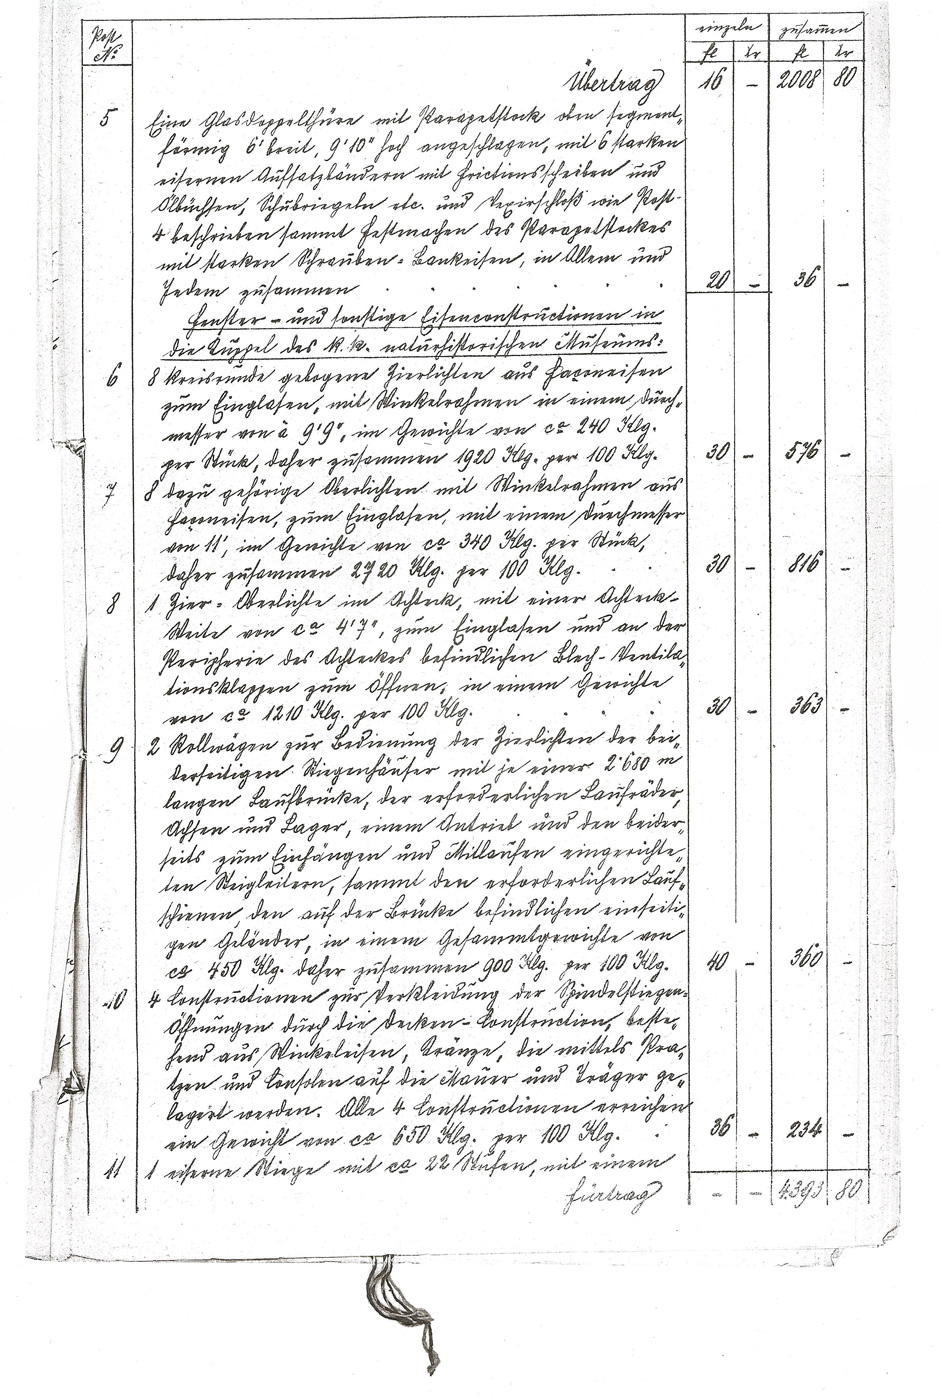 Post No einzeln zusammen
fl kr fl kr
Übertrag 16 – 2008 80
5 Eine Glasdoppelthüre mit Parapetstock oben segment„
förmig 6' breit, 9'10" hoch angeschlagen, mit 6 starken
eisernen Aufsatzbändern mit Frictionsscheiben und
Ölbüchsen, Schubriegeln etc. und Vexirschloß wie Post
4 beschrieben sammt Festmachen des Parapetstockes
mit starken Schrauben-Bankeisen, in Allem und
Jedem zusammen 20 – 36 –
Fenster- und sonstige Eisenconstructionen in
die Kuppel des k. k. naturhistorischen Museums:
6 8 kreisrunde gebogene Zierlichten aus Façoneisen
zum Einglasen, mit Winkelrahmen in einem Durch„
messer von à 9'9", im Gewichte von ca 240 Klg.
per Stück, daher zusammen 1920 Klg. per 100 Klg. 30 – 576 –
7 8 dazu gehörige Oberlichten mit Winkelrahmen aus
Façoneisen, zum Einglasen, mit einem Durchmesser
von 11', im Gewichte von ca 340 Klg. per Stück,
daher zusammen 2720 Klg. per 100 Klg. 30 – 816 –
8 1 Zier-Oberlichte im Achteck, mit einer Achteck-
Weite von ca 4'7", zum Einglasen und an der
Peripherie des Achteckes befindlichen Blech-Ventila„
tionsklappen zum Öffnen, in einem Gewichte
von ca 1210 Klg. per 100 Klg. 30 – 363 –
9 2 Rollwägen zur Bedienung der Zierlichten der bei„
derseitigen Stiegenhäuser mit je einer 2˙680 m
langen Laufbrücke, der erforderlichen Laufräder,
Achsen und Lager, einem Antrieb und den beider„
seits zum Einhängen und Mitlaufen eingerichte„
ten Steigleitern, sammt den erforderlichen Lauf„
schienen, den auf der Brücke befindlichen einseiti„
gen Geländer, in einem Gesammtgewichte von
ca 450 Klg. daher zusammen 900 Klg. per 100 Klg. 40 – 360 –
10 4 Constructionen zur Verkleidung der Spindelstiegen-
Öffnungen durch die Decken-Construction, beste„
hend aus Winkeleisen, Kränze, die mittels Pra„
tzen und Consolen auf die Mauer und Träger ge„
lagert werden. Alle 4 Constructionen erreichen
ein Gewicht von ca 650 Klg. per 100 Klg. 36 – 234 –
11 1 eiserne Stiege mit ca 22 Stufen, mit einem
Fürtrag – – 4393 80